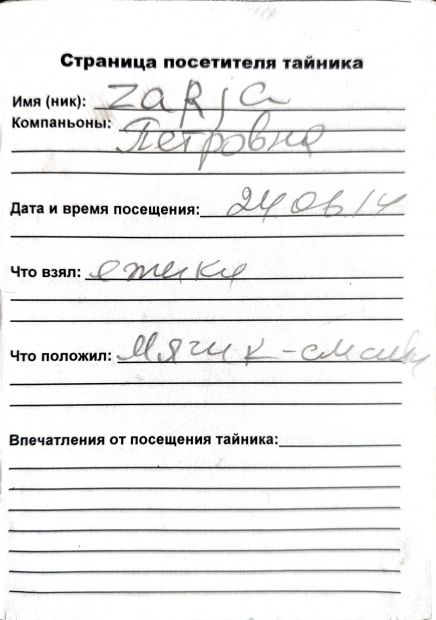 Страница посетителя тайника
Имя (ник): zaRja
Компаньоны:
Петровна
Дата и время посещения: 24 06 14
Что взял: ежика
Что положил: Мячик-смайл
Впечатления от посещения тайника: